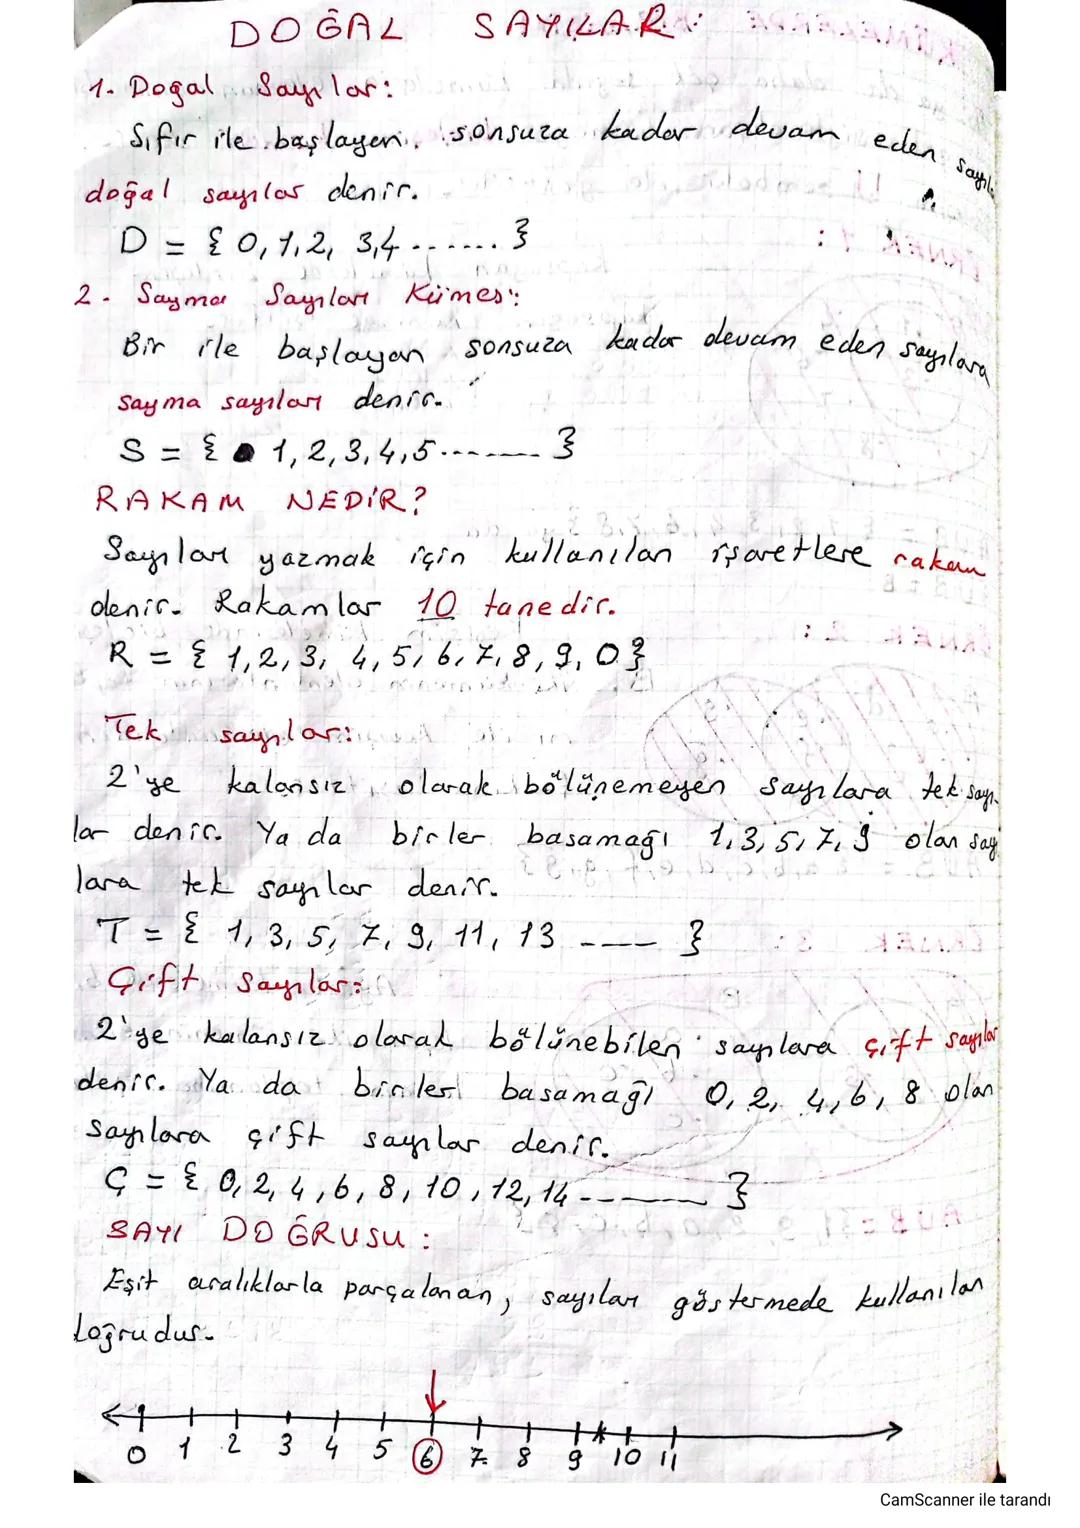 DOĞAL SAYILAR:
1. Doğal Sayılar:
Sıfır ile başlayan sonsuza kadar devam eden
doğal sayılar denir.
D = { 0, 1, 2, 3, 4 ....... }
2. Sayma Sayıları Kümesi:
Bir ile başlayan sonsuza kadar devam eden sayılara
sayma sayıları denir.
S = { 1, 2, 3, 4, 5 ------- }
RAKAM NEDİR?
Sayıları yazmak için kullanılan işaretlere rakam
denir. Rakamlar 10 tanedir.
R = { 1, 2, 3, 4, 5, 6, 7, 8, 9, 0 }
Tek sayılar:
2'ye kalansız olarak bölünemeyen sayılara tek sayı
lar denir. Ya da birler basamağı 1, 3, 5, 7, 9 olan sayı
lara tek sayılar denir.
T = { 1, 3, 5, 7, 9, 11, 13 ---- }
Çift Sayılar:
2'ye kalansız olarak bölünebilen sayılara çift sayılar
denir. Ya da birler basamağı 0, 2, 4, 6, 8 olan
sayılara çift sayılar denir.
Ç = { 0, 2, 4, 6, 8, 10, 12, 14 ------ }
SAYI DOĞRUSU:
Eşit aralıklarla parçalanan, sayıları göstermede kullanılan
doğrudur.
0 1 2 3 4 5 6 7 8 9 10 11
CamScanner ile tarandı